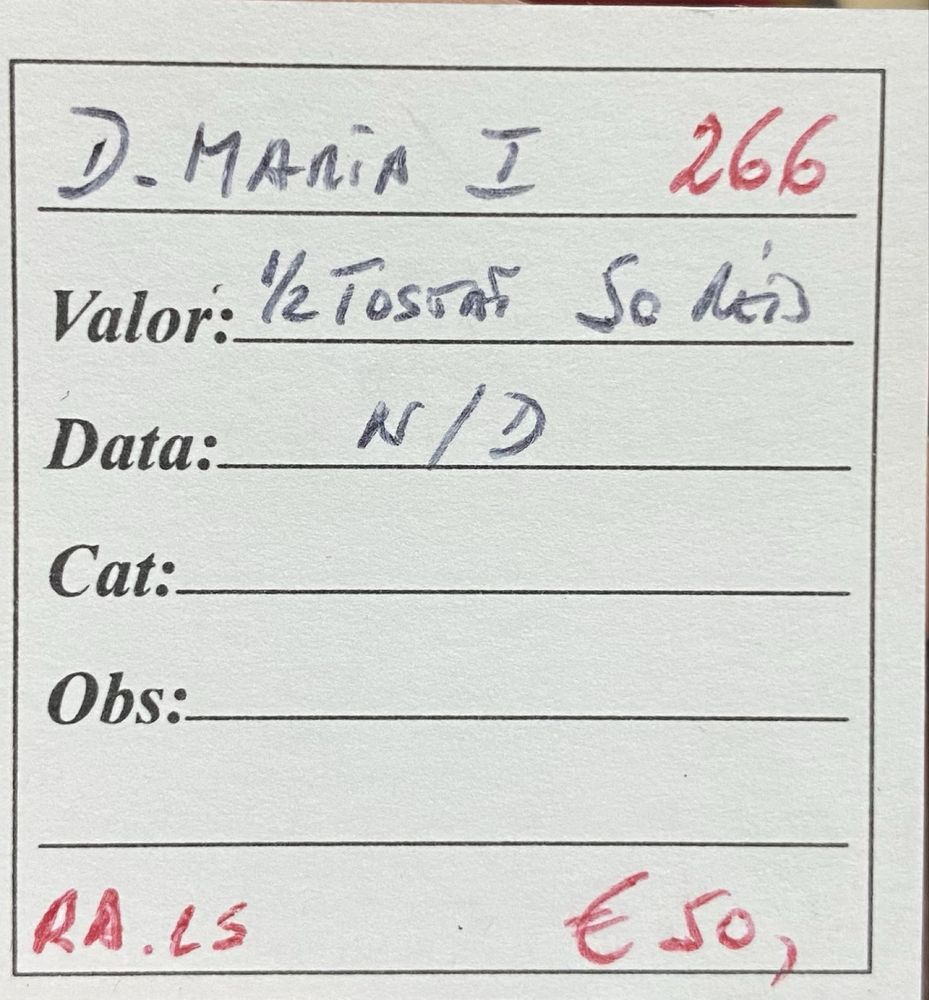 D. MARIA I 266
Valor: 1/2 TOSTÃO 50 RÉIS
Data: N/D
Cat:
Obs:
RA.LS € 50,